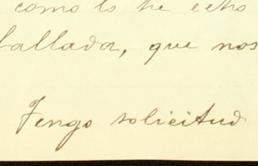 como lo he echo
fallador, que nos
Tengo solicitud